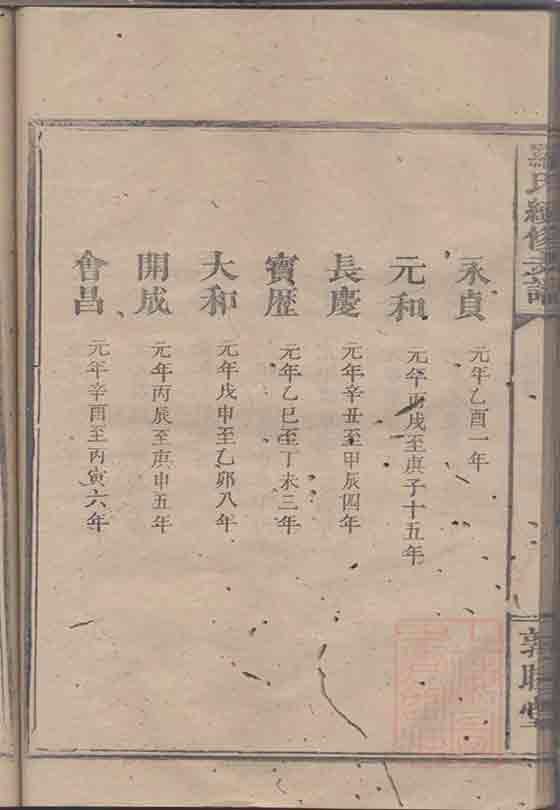 羅氏續修支譜
永貞 元年乙酉一年
元和 元年丙戌至庚子十五年
長慶 元年辛丑至甲辰四年
寶歷 元年乙巳至丁未三年
大和 元年戊申至乙卯八年
開成 元年丙辰至庚申五年
會昌 元年辛酉至丙寅六年
敦睦堂